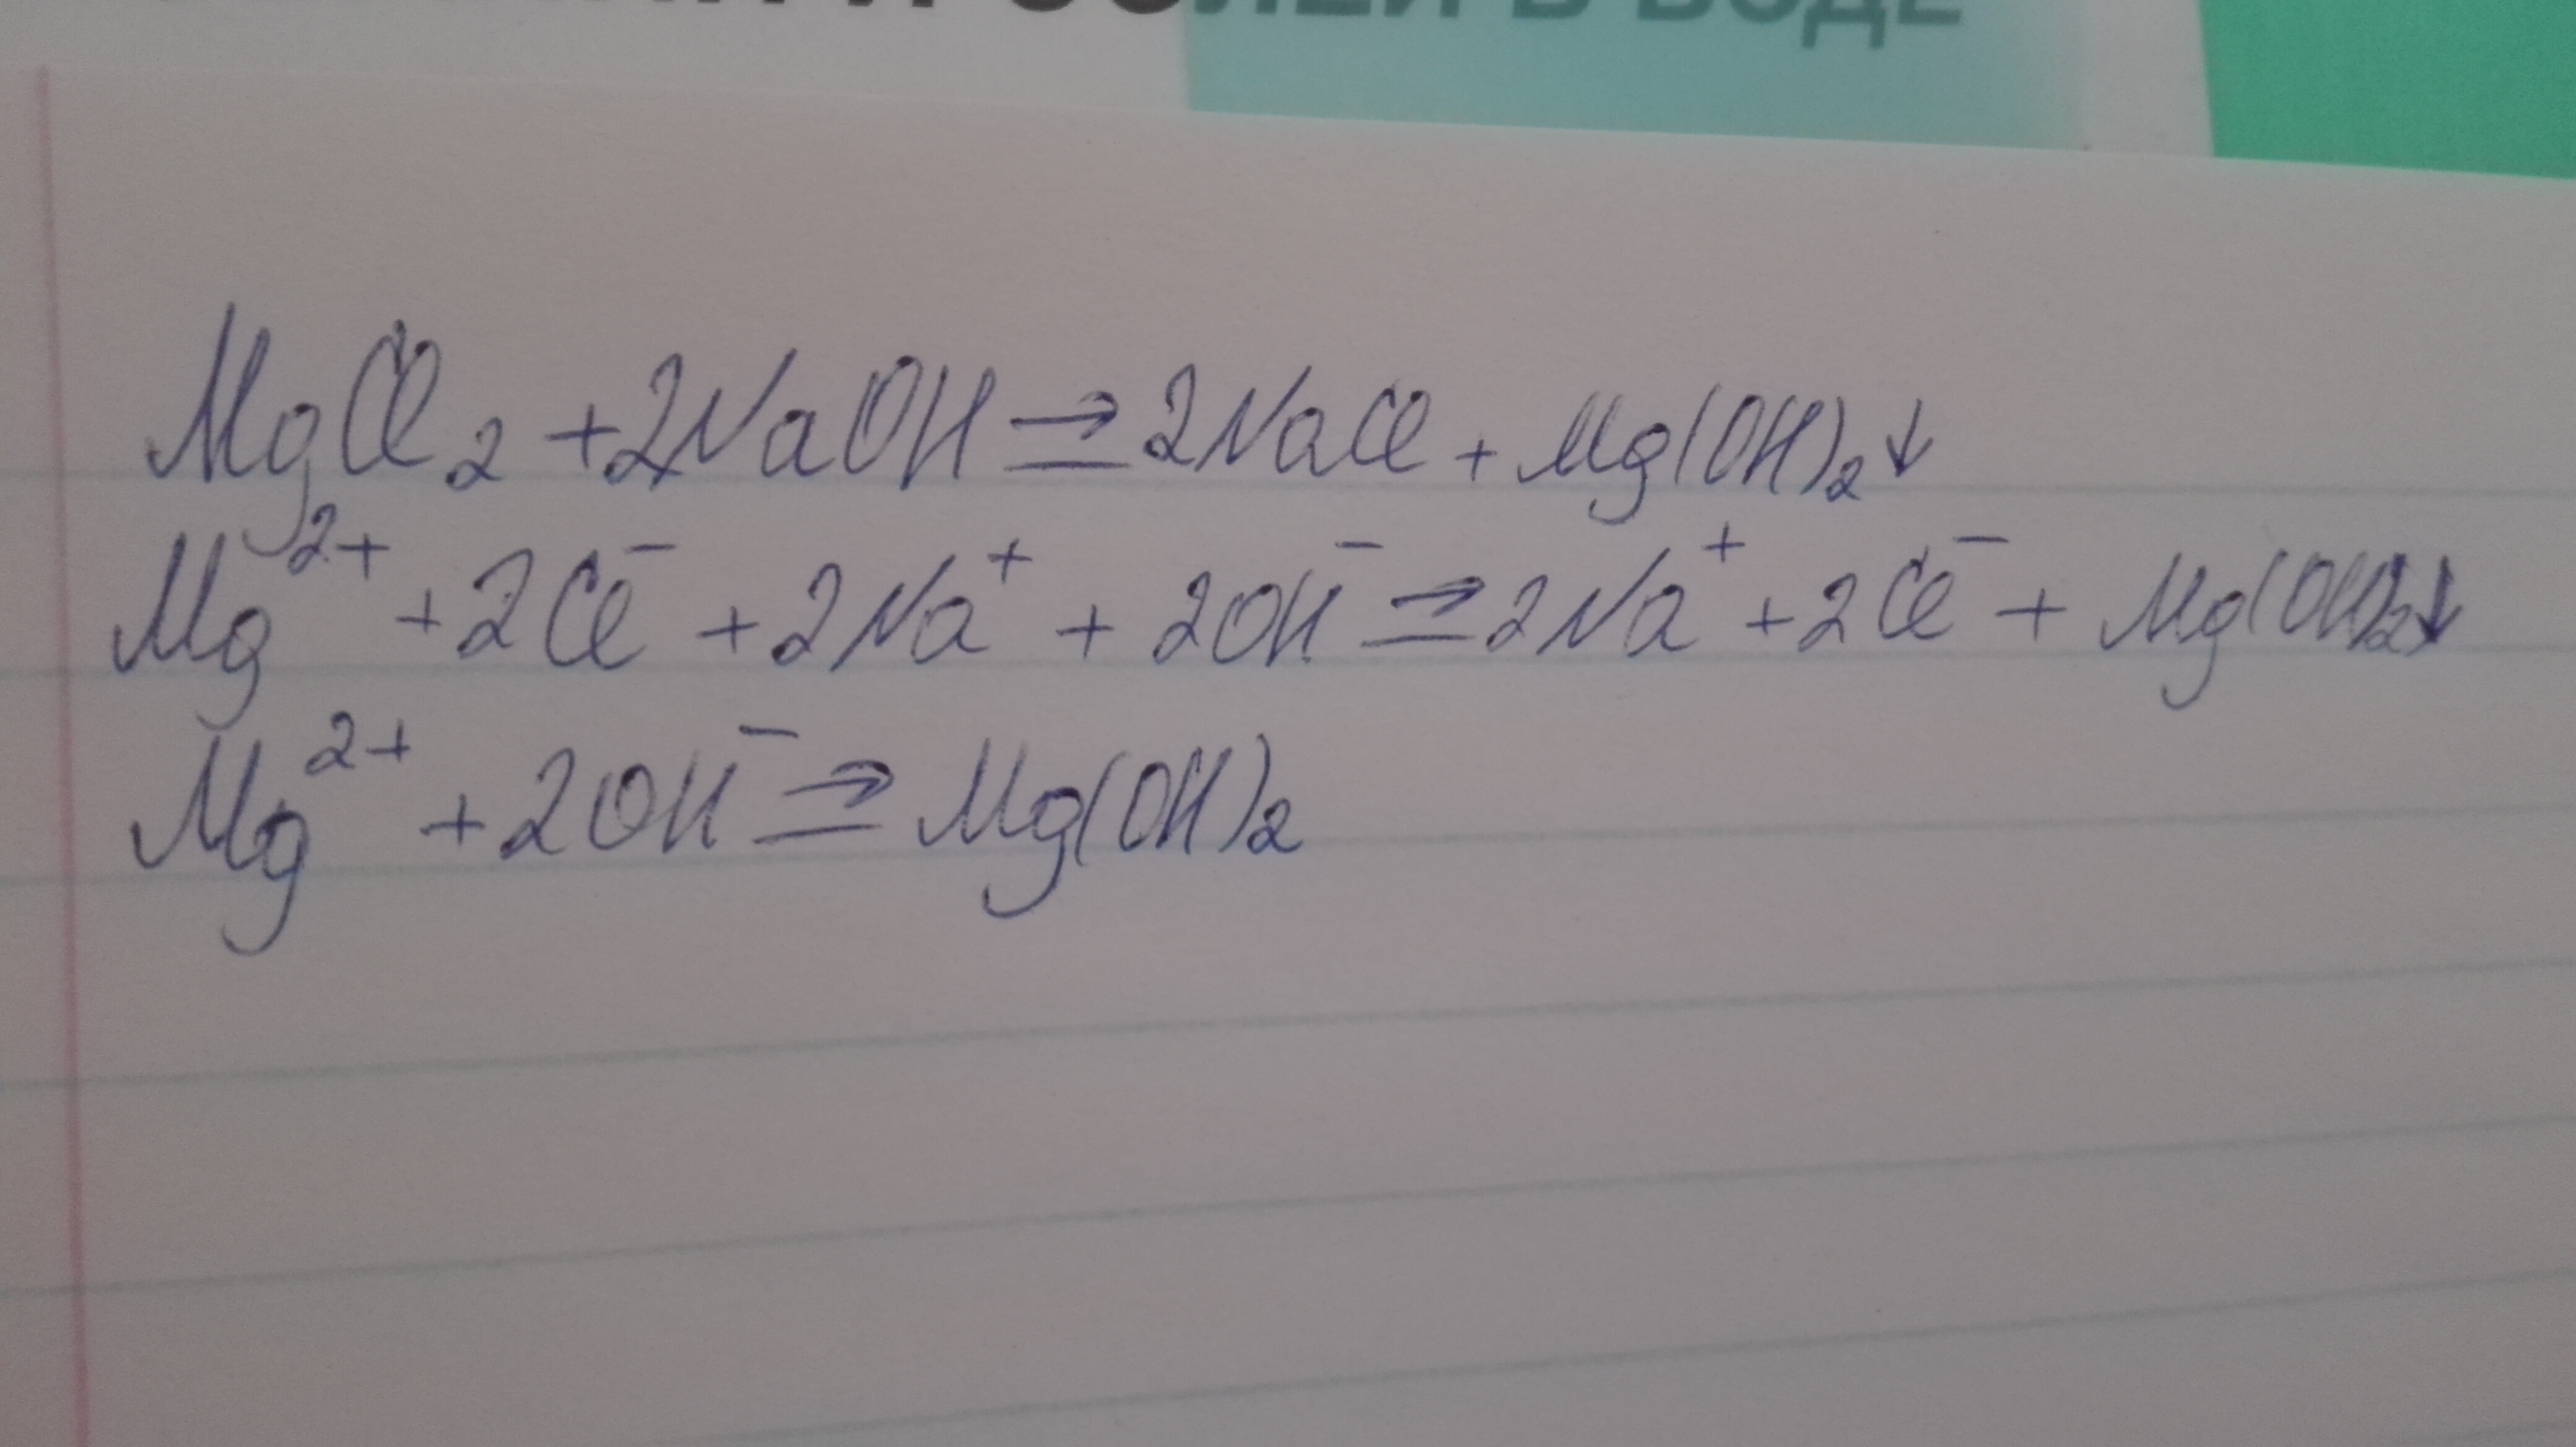 СОЛЕЙ В ВОДЕ
MgCl₂ + 2NaOH ⇒ 2NaCl + Mg(OH)₂↓
Mg²⁺ + 2Cl⁻ + 2Na⁺ + 2OH⁻ ⇒ 2Na⁺ + 2Cl⁻ + Mg(OH)₂↓
Mg²⁺ + 2OH⁻ ⇒ Mg(OH)₂